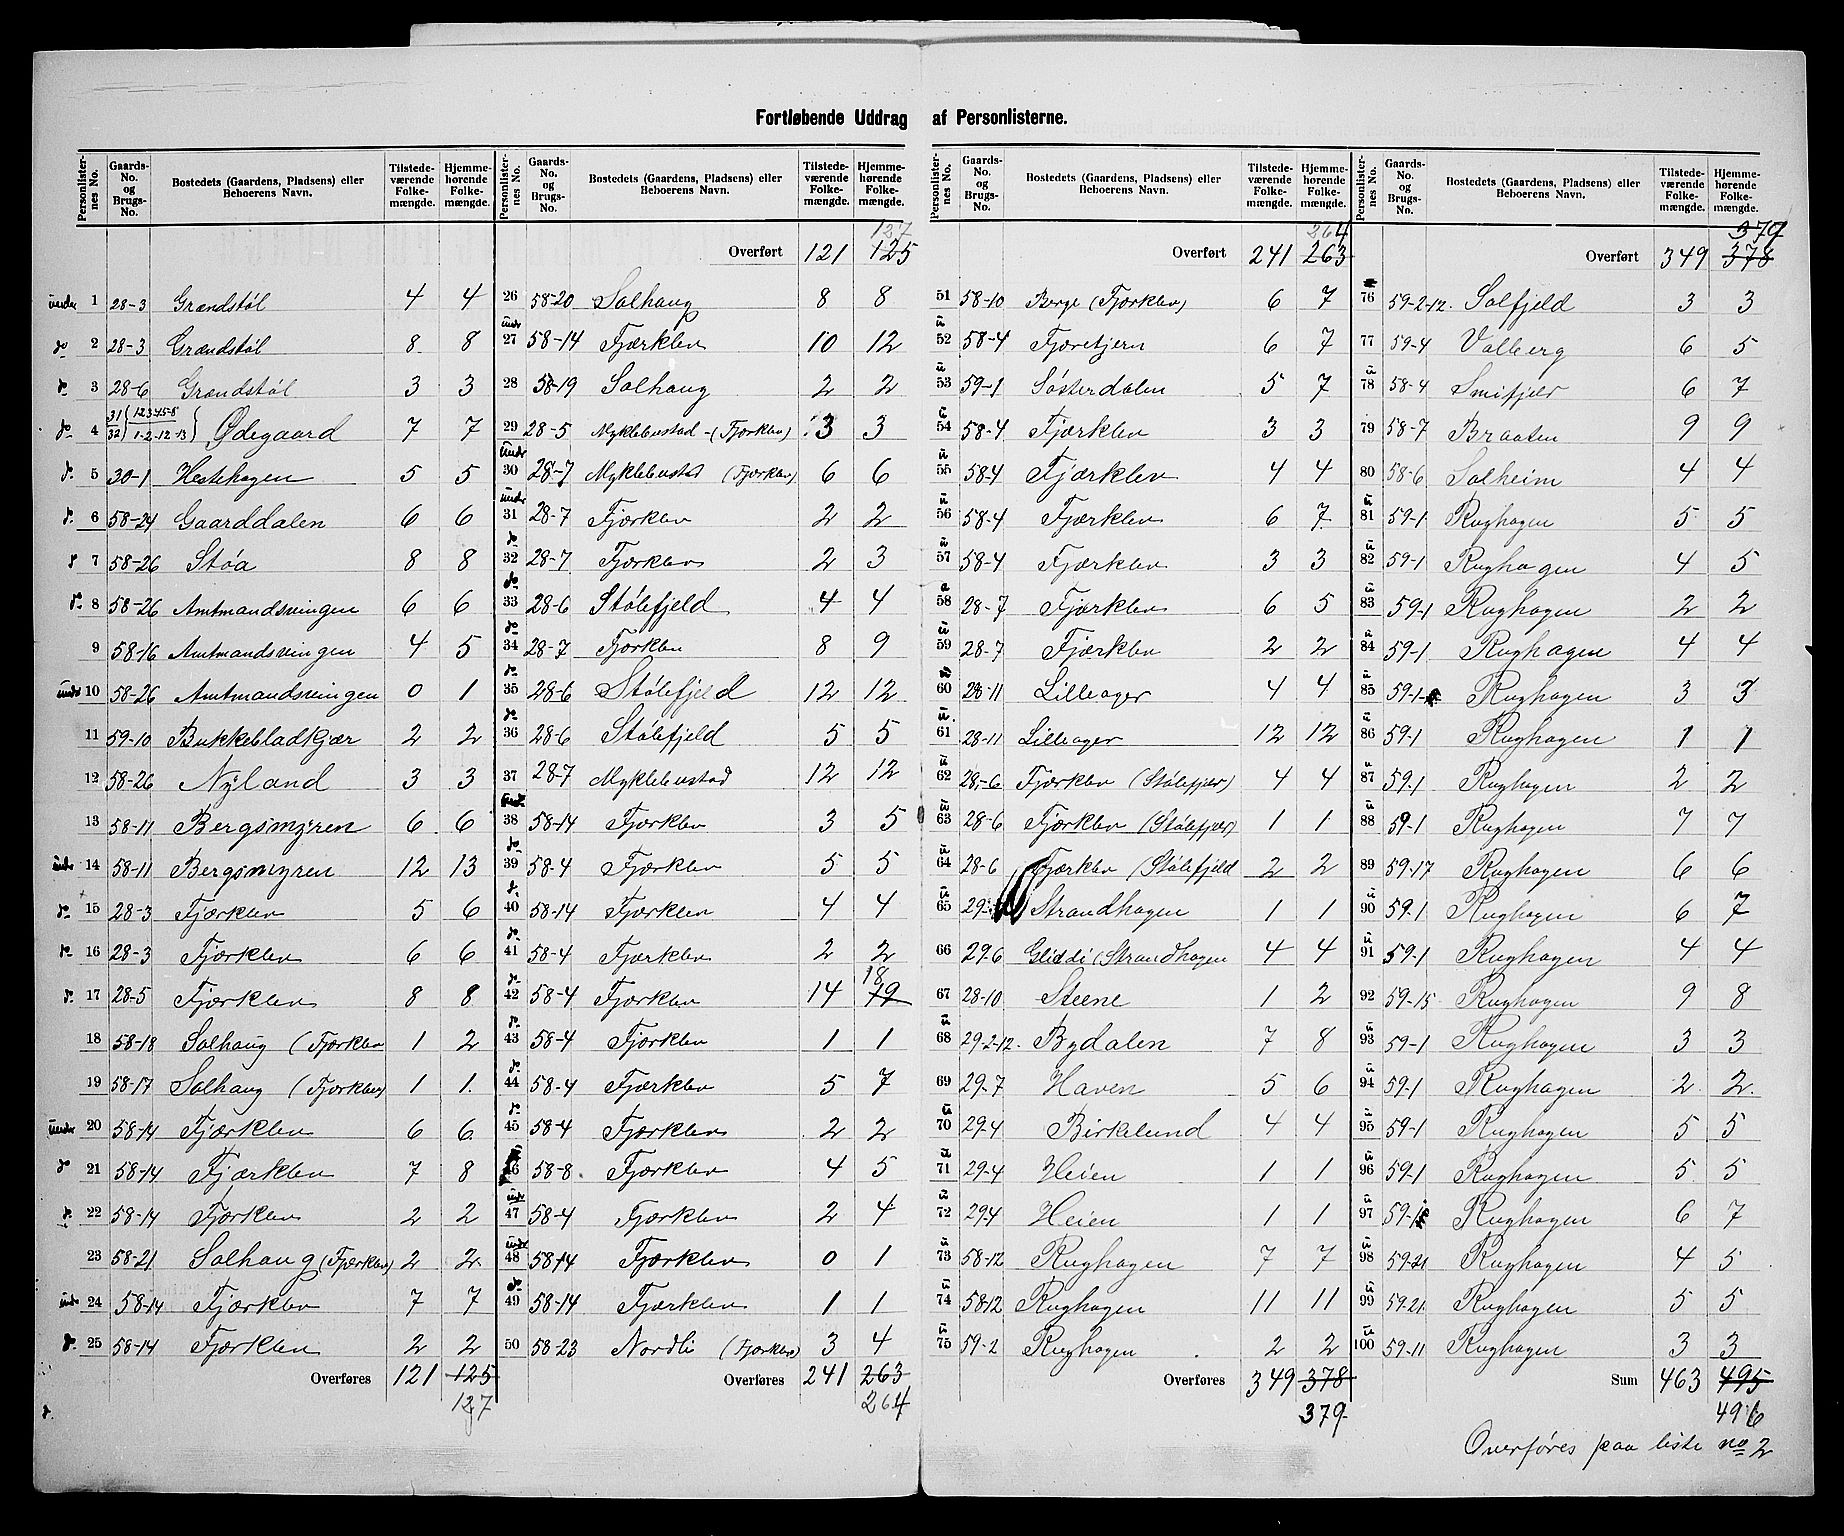 Fortløbende Uddrag af Personlisterne.
Personlister-nes No. | Gaards-No. og Brugs-No. | Bostedets (Gaardens, Pladsens) eller Beboerens Navn. | Tilstede-værende Folke-mængde. | Hjemme-hørende Folke-mængde.
under 1 28-3 Grændstøl 4 4
do 2 28-3 Grændstøl 8 8
do 3 28-6 Grændstøl 3 3
do 4 31 32 Ødegaard 7 7
do 5 30-1 Hestehagen 5 5
do 6 58-24 Gaarddalen 6 6
do 7 58-26 Støa 8 8
do 8 58-26 Amtmandsvingen 6 6
9 58-16 Amtmandsvingen 4 5
undr 10 58-26 Amtmandsvingen 0 1
11 59-10 Bukkebladkjær 2 2
12 58-26 Nyland 3 3
13 58-11 Bergsmyren 6 6
undr 14 58-11 Bergsmyren 12 13
do 15 28-3 Fjærklev 5 6
do 16 28-3 Fjærklev 6 6
do 17 28-5 Fjærklev 8 8
18 58-18 Solhaug (Fjærklev 1 2
19 58-17 Solhaug (Fjærklev) 1 1
under 20 58-14 Fjærklev 6 6
do 21 58-14 Fjærklev 7 8
do 22 58-14 Fjærklev 2 2
23 58-21 Solhaug (Fjærklev) 2 2
undr 24 58-14 Fjærklev 7 7
do 25 58-14 Fjærklev 2 2
Overføres 121 125
127
Personlister-nes No. | Gaards-No. og Brugs-No. | Bostedets (Gaardens, Pladsens) eller Beboerens Navn. | Tilstede-værende Folke-mængde. | Hjemme-hørende Folke-mængde.
127
Overført 121 125
26 58-20 Solhaug 8 8
undr 27 58-14 Fjærklev 10 12
28 58-19 Solhaug 2 2
29 28-5 Myklebustad - (Fjærklev) 3 3
undr 30 28-7 Myklebustad (Fjærklev) 6 6
undr 31 28-7 Fjærklev 2 2
do 32 28-7 Fjærklev 2 3
do 33 28-6 Stølefjeld 4 4
do 34 28-7 Fjærklev 8 9
do 35 28-6 Stølefjeld 12 12
do 36 28-6 Stølefjeld 5 5
37 28-7 Myklebustad 12 12
undr 38 58-14 Fjærklev 3 5
do 39 58-4 Fjærklev 5 5
do 40 58-14 Fjærklev 4 4
do 41 58-4 Fjærklev 2 2
do 42 58-4 Fjærklev 14 18 19
do 43 58-4 Fjærklev 1 1
do 44 58-4 Fjærklev 5 7
do 45 58-4 Fjærklev 2 2
46 58-8 Fjærklev 4 5
undr 47 58-4 Fjærklev 2 4
undr 48 58-14 Fjærklev 0 1
do 49 58-14 Fjærklev 1 1
50 58-23 Nordli (Fjærklev) 3 4
Overføres 241 263
264
Personlister-nes No. | Gaards-No. og Brugs-No. | Bostedets (Gaardens, Pladsens) eller Beboerens Navn. | Tilstede-værende Folke-mængde. | Hjemme-hørende Folke-mængde.
264
Overført 241 263
51 58-10 Berge (Fjærklev) 6 7
u 52 58-4 Fjæretjern 6 7
u 53 59-1 Søsterdalen 5 7
u 54 58-4 Fjærklev 3 3
u 55 58-4 Fjærklev 4 4
u 56 58-4 Fjærklev 6 7
u 57 58-4 Fjærklev 3 3
u 58 28-7 Fjærklev 6 5
u 59 28-7 Fjærklev 2 2
u 60 28-11 Lilleager 4 4
u 61 28-11 Lilleager 12 12
u 62 28-6 Fjærklev (Stølefjeld) 4 4
u 63 28-6 Fjærklev (Stølefjeld) 1 1
u 64 28-6 Fjærklev (Stølefjeld 2 2
u 65 29- Strandhagen 1 1
66 29-6 Gliddi (Strandhagen 4 4
67 28-10 Steene 1 2
u 68 29-2-12. Bydalen 7 8
69 29-7 Haven 5 6
u 70 29-4 Birkelund 4 4
u 71 29-4 Heien 1 1
u 72 29-4 Heien 1 1
u 73 58-12 Rughagen 7 7
u 74 58-12 Rughagen 11 11
u 75 59-2 Rughagen 2 2
Overføres 349 378
379
Personlister-nes No. | Gaards-No. og Brugs-No. | Bostedets (Gaardens, Pladsens) eller Beboerens Navn. | Tilstede-værende Folke-mængde. | Hjemme-hørende Folke-mængde.
379
Overført 349 378
76 59-2-12. Solfjeld 3 3
77 59-4 Valberg 6 5
u 78 58-4 Smifjær 6 7
79 58-7 Braaten 9 9
80 58-6 Solheim 4 4
u 81 59-1 Rughagen 5 5
u 82 59-1 Rughagen 4 5
u 83 59-1 Rughagen 2 2
u 84 59-1 Rughagen 4 4
u 85 59-1 Rughagen 3 3
u 86 59-1 Rughagen 1 1
u 87 59-1 Rughagen 2 2
u 88 59-1 Rughagen 7 7
89 59-17 Rughagen 6 6
u 90 59-1 Rughagen 6 7
u 91 59-1 Rughagen 4 4
92 59-15 Rughagen 9 8
u 93 59-1 Rughagen 3 3
u 94 59-1 Rughagen 2 2
u 95 59-1 Rughagen 5 5
u 96 59-1 Rughagen 5 5
u 97 59-1 Rughagen 6 7
u 98 59-21 Rughagen 4 5
u 99 59-21 Rughagen 5 5
u 100 59-11 Rughagen 3 3
Sum 463 495
496
Overføres paa liste no 2